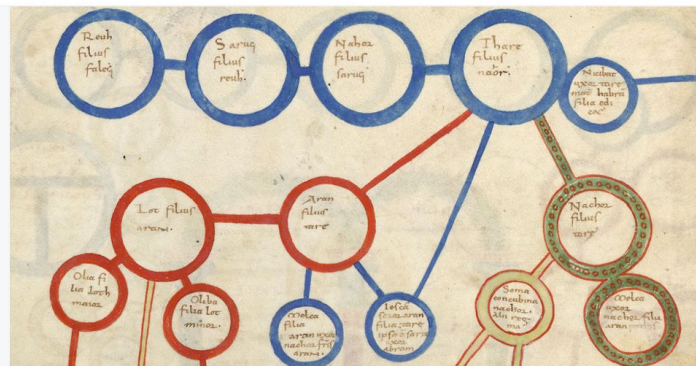 Reuh
filius
faleg
Sarug
filius
reuh.
Nahor
filius
sarug
Thare
filius
naor.
uxor tare
filia
Lot filius
aram.
Aran
filius
tare
Nachor
filius
tare
Olia fi
lia loth
maior
Oliba
filia lot
minor.
Melca
filia
aran uxor
nachor fris
aran.
Iesca
soror aran
filia tare
ipsa e sara
uxor
abram
Soma
concubina
nachor.
Melca
uxor
nachor filia
aran